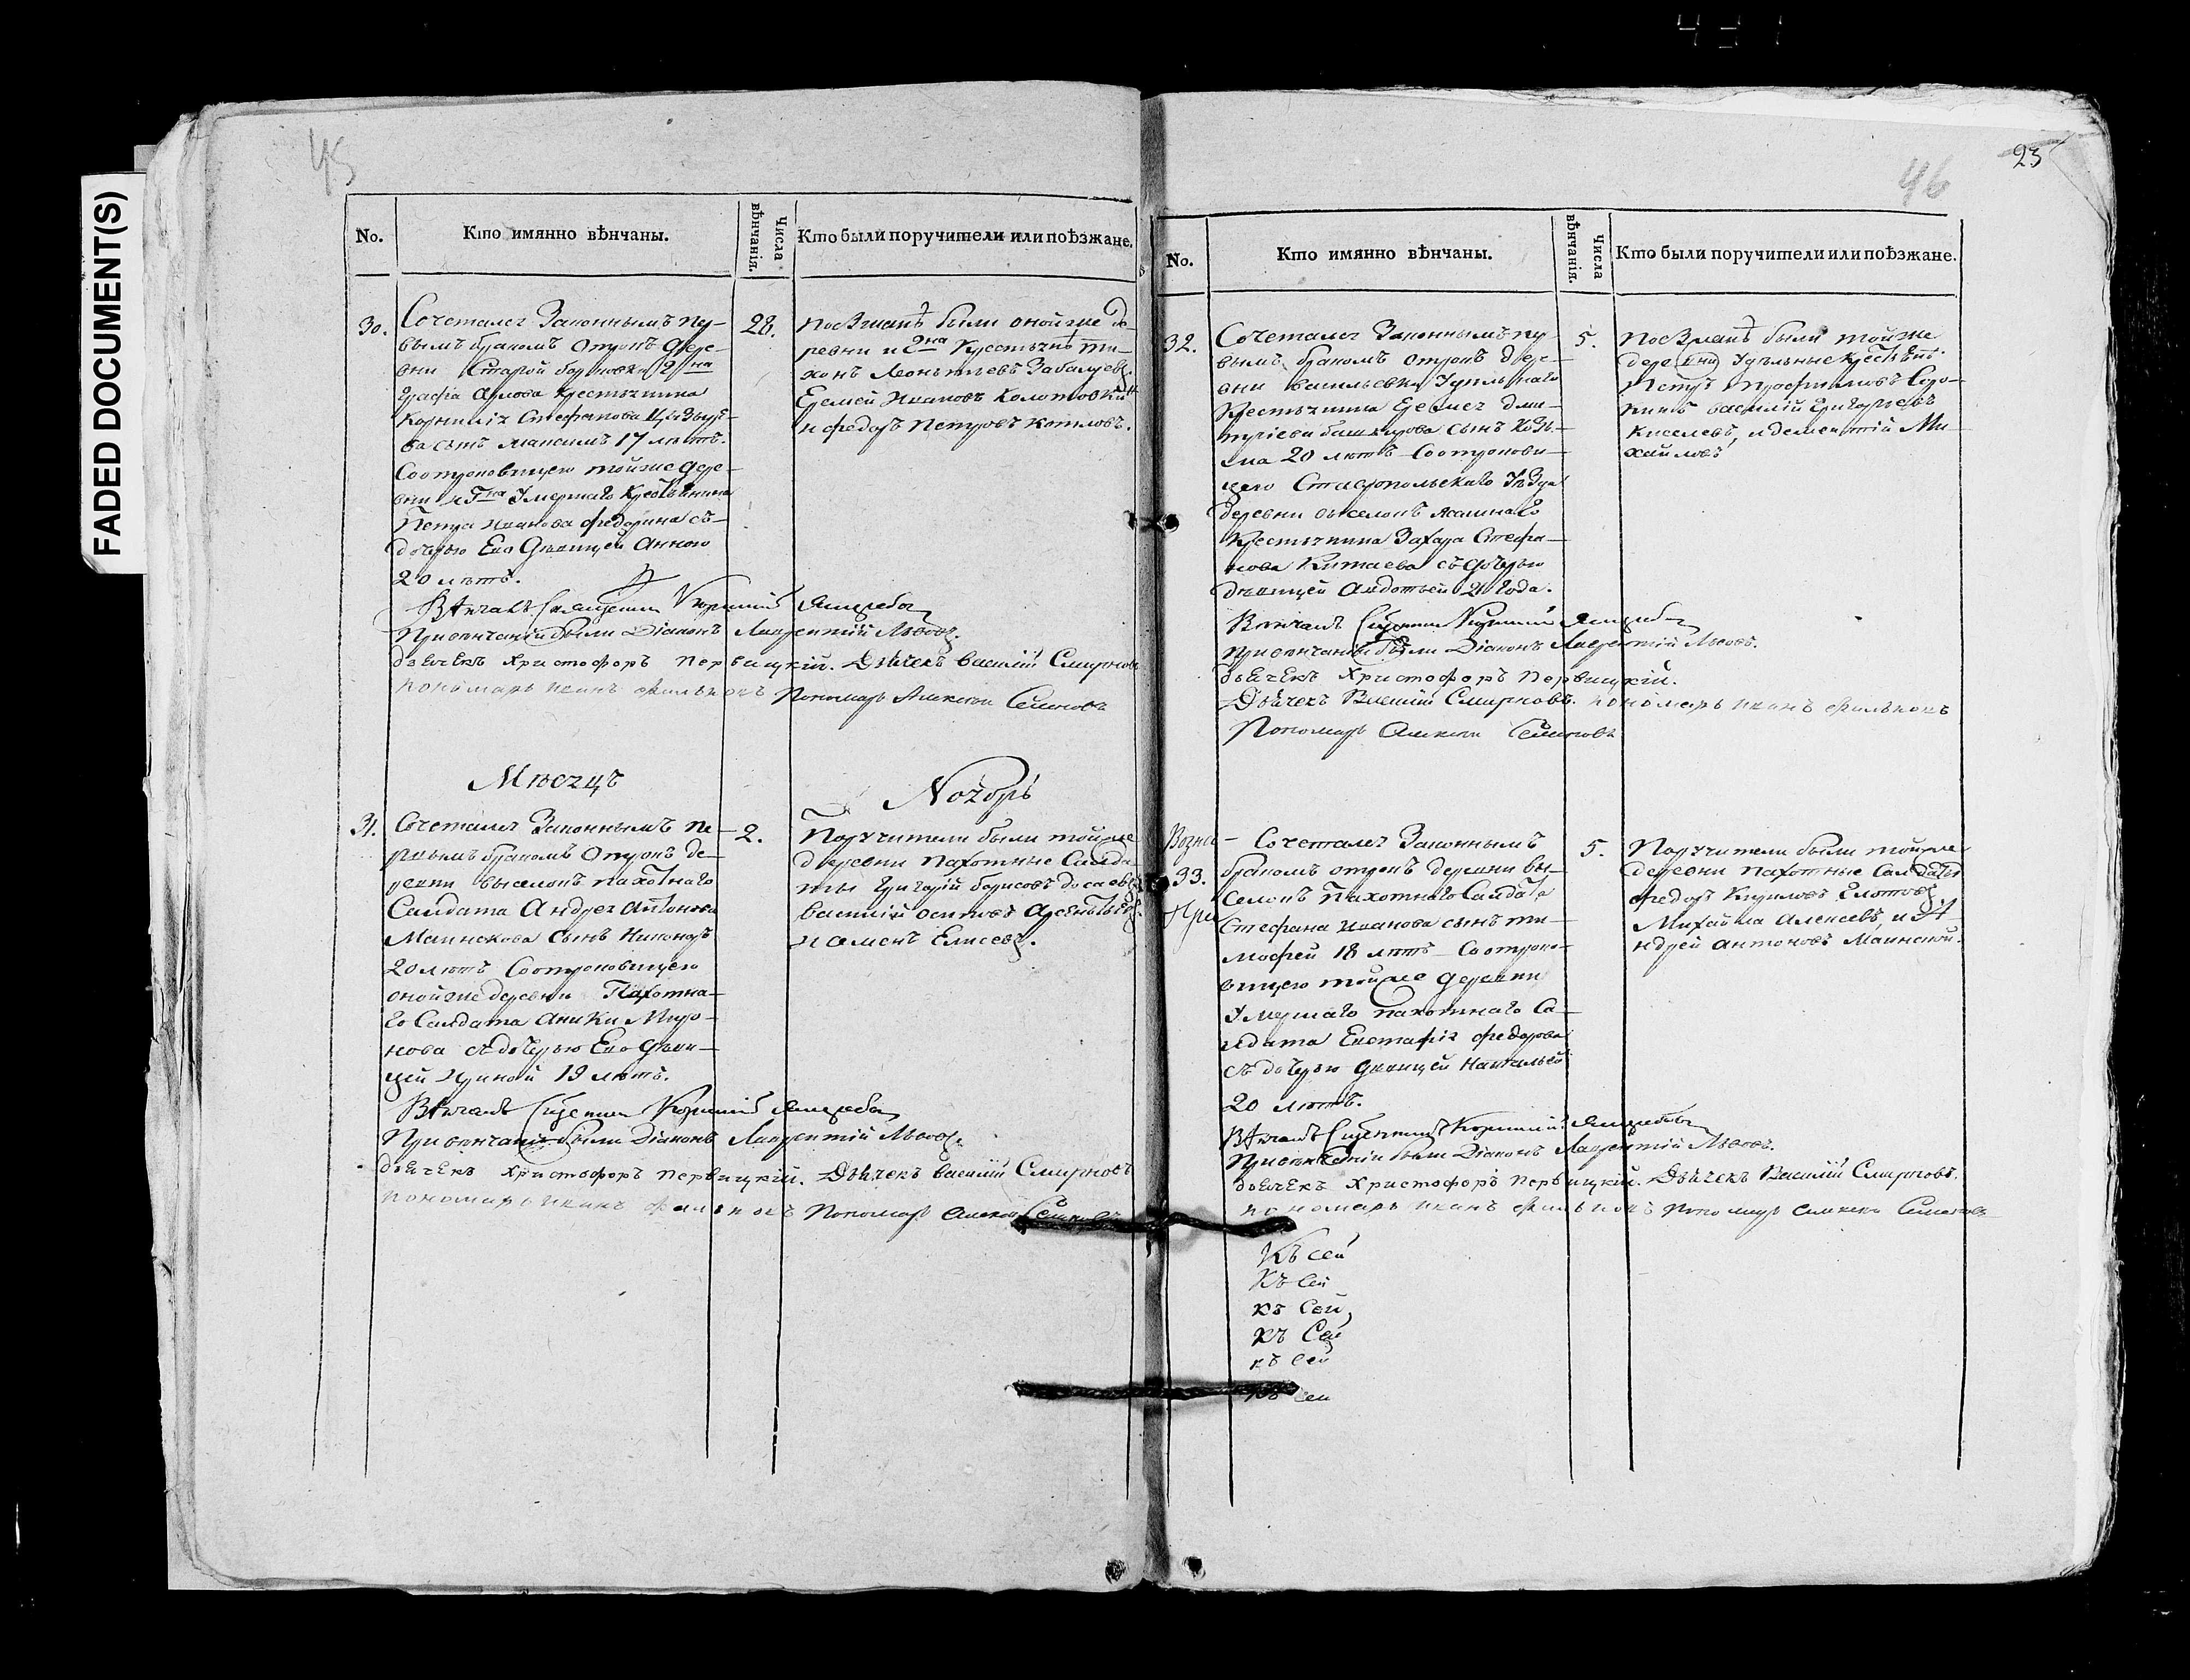 431
FADED DOCUMENT(S)
45
No.
Кто имянно вѣнчаны.
Числа вѣнчанія.
Кто были поручители или поѣзжане.
30.
Сочетался Законнымъ пер-
вымъ бракомъ Отрокъ дере-
вни Старой
Графа Орлова крестьянина
Корнилія Стефанова
сынъ Максимъ 17 лѣтъ.
Соотроковицею тойже дере-
вни и Гна Умершаго Крестьянина
Петра Иванова Федорина съ
дочерью Его дѣвицей Анною
20 лѣтъ.
28.
Поезжанѣ были онойже де-
ревни и Гна Крестьянѣ Ти-
хонъ Леонтьевъ
Еремей Ивановъ
и Федоръ Петровъ Котловъ.
Вѣнчалъ Священникъ
При вѣнчаніи были Діаконъ Лаврентій Львовъ.
дьячекъ Христофоръ Первицкій. Дьячекъ Василій Смирновъ
пономарь Иванъ Фильковъ Пономарь Алексей Семеновъ
Мѣсяцъ
Ноябрь
31.
Сочетался Законнымъ пе-
рвымъ бракомъ Отрокъ де-
ревни Выселокъ пахотнаго
Салдата Андрея Антонова
Маинскова сынъ Никоноръ
20 лѣтъ Соотроковицею
онойже деревни Пахотна-
го Салдата Аники Миро-
нова съ дочерью Его дѣви-
цей Ириной 19 лѣтъ.
2.
Поручители были тойже
деревни Пахотные Салда-
ты Григорій Борисовъ
Василій Осиповъ
и Семенъ Елисеевъ.
Вѣнчалъ Священникъ
При вѣнчаніи были Діаконъ Лаврентій Львовъ.
дьячекъ Христофоръ Первицкій. Дьячекъ Василій Смирновъ
пономарь Иванъ Фильковъ Пономарь Алексей Семеновъ
46
23
No.
Кто имянно вѣнчаны.
Числа вѣнчанія.
Кто были поручители или поѣзжане.
32.
Сочетался Законнымъ пер-
вымъ бракомъ отрокъ дере-
вни Васильевки Удѣльнаго
Крестьянина Еремея Дми-
тріева Башкирова сынъ Козь-
ма 20 лѣтъ Соотрокови-
цею Ставропольскаго Уѣзда
деревни Выселокъ Ясашнаго
Крестьянина Захара Стефа-
нова Китаева съ дочерью
дѣвицей Авдотьей 21 года.
5.
Поезжанѣ были тойже
деревни Удѣльные Крестьянѣ
Петръ Трофимовъ Соро-
кинъ Василій Григорьевъ
Киселевъ, и Дементій Ми-
хайловъ
Вѣнчалъ Священникъ
При вѣнчаніи были Діаконъ Лаврентій Львовъ.
дьячекъ Христофоръ Первицкій.
Дьячекъ Василій Смирновъ. пономарь Иванъ Фильковъ
Пономарь Алексей Семеновъ
33.
При
Сочетался Законнымъ
бракомъ отрокъ деревни Вы-
селокъ Пахотнаго Салдата
Стефана Иванова сынъ Ти-
мофей 18 лѣтъ Соотроко-
вицею тойже деревни
Умершаго пахотнаго Са-
лдата Евстафія Федорова
съ дочерью дѣвицей Натальей
20 лѣтъ.
5.
Поручители были тойже
деревни пахотные Салдаты
Федоръ Кириловъ
Михайла Алексеевъ, и А-
ндрей Антоновъ Маинской.
Вѣнчалъ Священникъ
При вѣнчаніи были Діаконъ Лаврентій Львовъ.
дьячекъ Христофоръ Первицкій. Дьячекъ Василій Смирновъ.
пономарь Иванъ Фильковъ Пономарь Алексей Семеновъ
Къ сей
Къ сей
къ Сей
къ Сей
къ сей
Къ сей